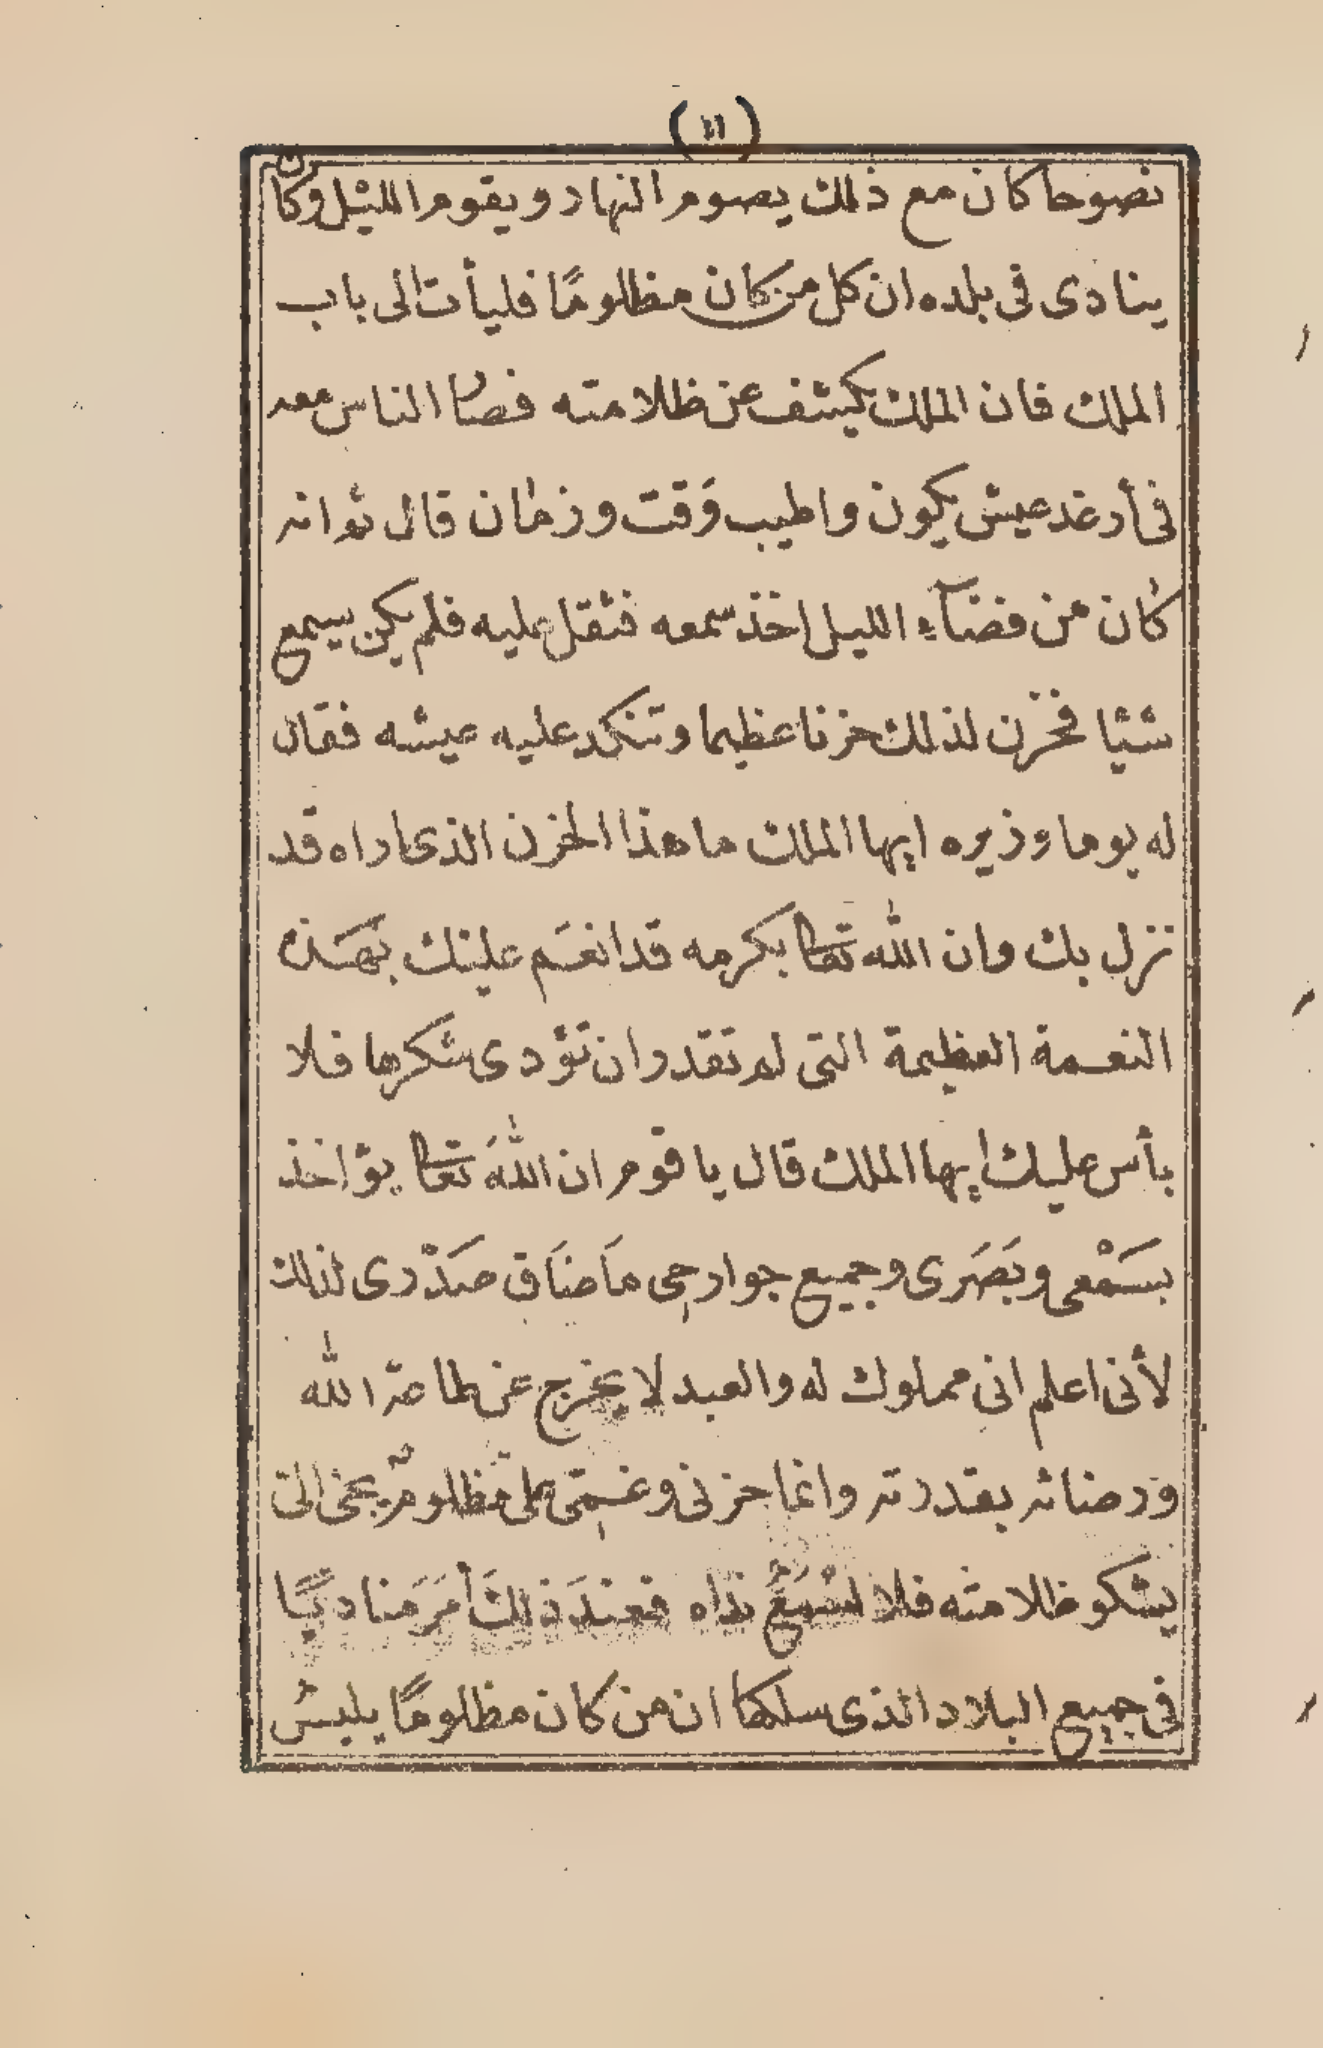 (١١)
نصوحا كان مع ذلك يصوم النهار ويقوم الليل وكان
ينادى فى بلده ان كل من كان مظلومًا فليأت الى باب
الملك فان الملك يكشف عن ظلامته فصار الناس معه
فى أرغد عيش يكون واطيب وَقت وزمان قال ثم انه
كان من قضآء الليل اخذ سمعه فثقل عليه فلم يكن يسمع
شئيا فحزن لذلك حزنا عظيما وتنكد عليه عيشه فقال
له يوما وزيره ايها الملك ما هذا الحزن الذى اراه قد
نزل بك وان الله تعالى بكرمه قد انعَم عليك بهَذه
النعمة العظيمة التى لم تقدر ان تؤدى شكرها فلا
بأس عليك ايها الملك قال يا قوم ان اللهَ تعالى يؤاخذ
بسَمْعى وبَصَرى وجميع جوارحى مَا ضَاق صَدْرى لذلك
لأنى اعلم انى مملوك له والعبد لا يخرج عن طاعة الله
ورضائه بقدرته وانما حزنى وغمّى على مظلوم يجئ الىّ
يشكو ظلامته فلا اسْمَعُ نداه فعندَ ذلكَ أمَرَ مَناديًا
فى جميع البلاد الذى سلكها ان من كان مظلومًا يلبس